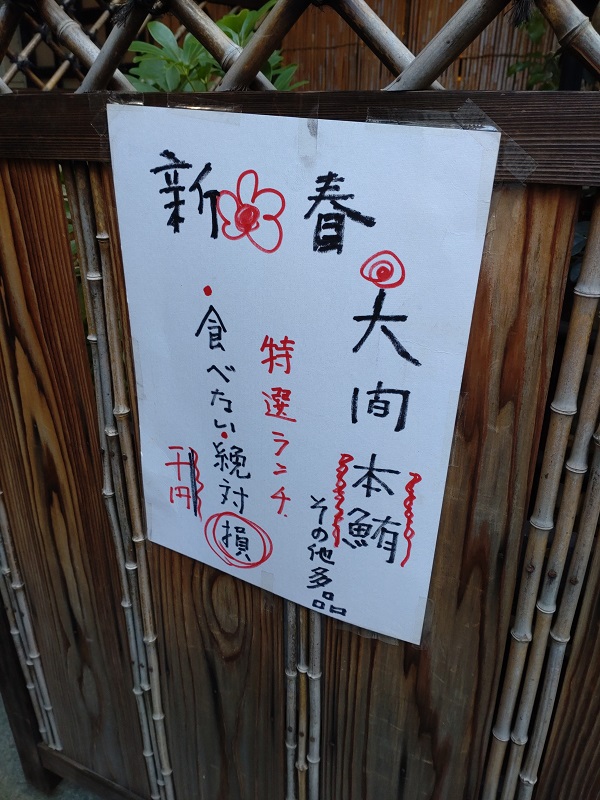 新春
大間
本鮪
その他多品
特選ランチ.
・食べない・絶対損
千円